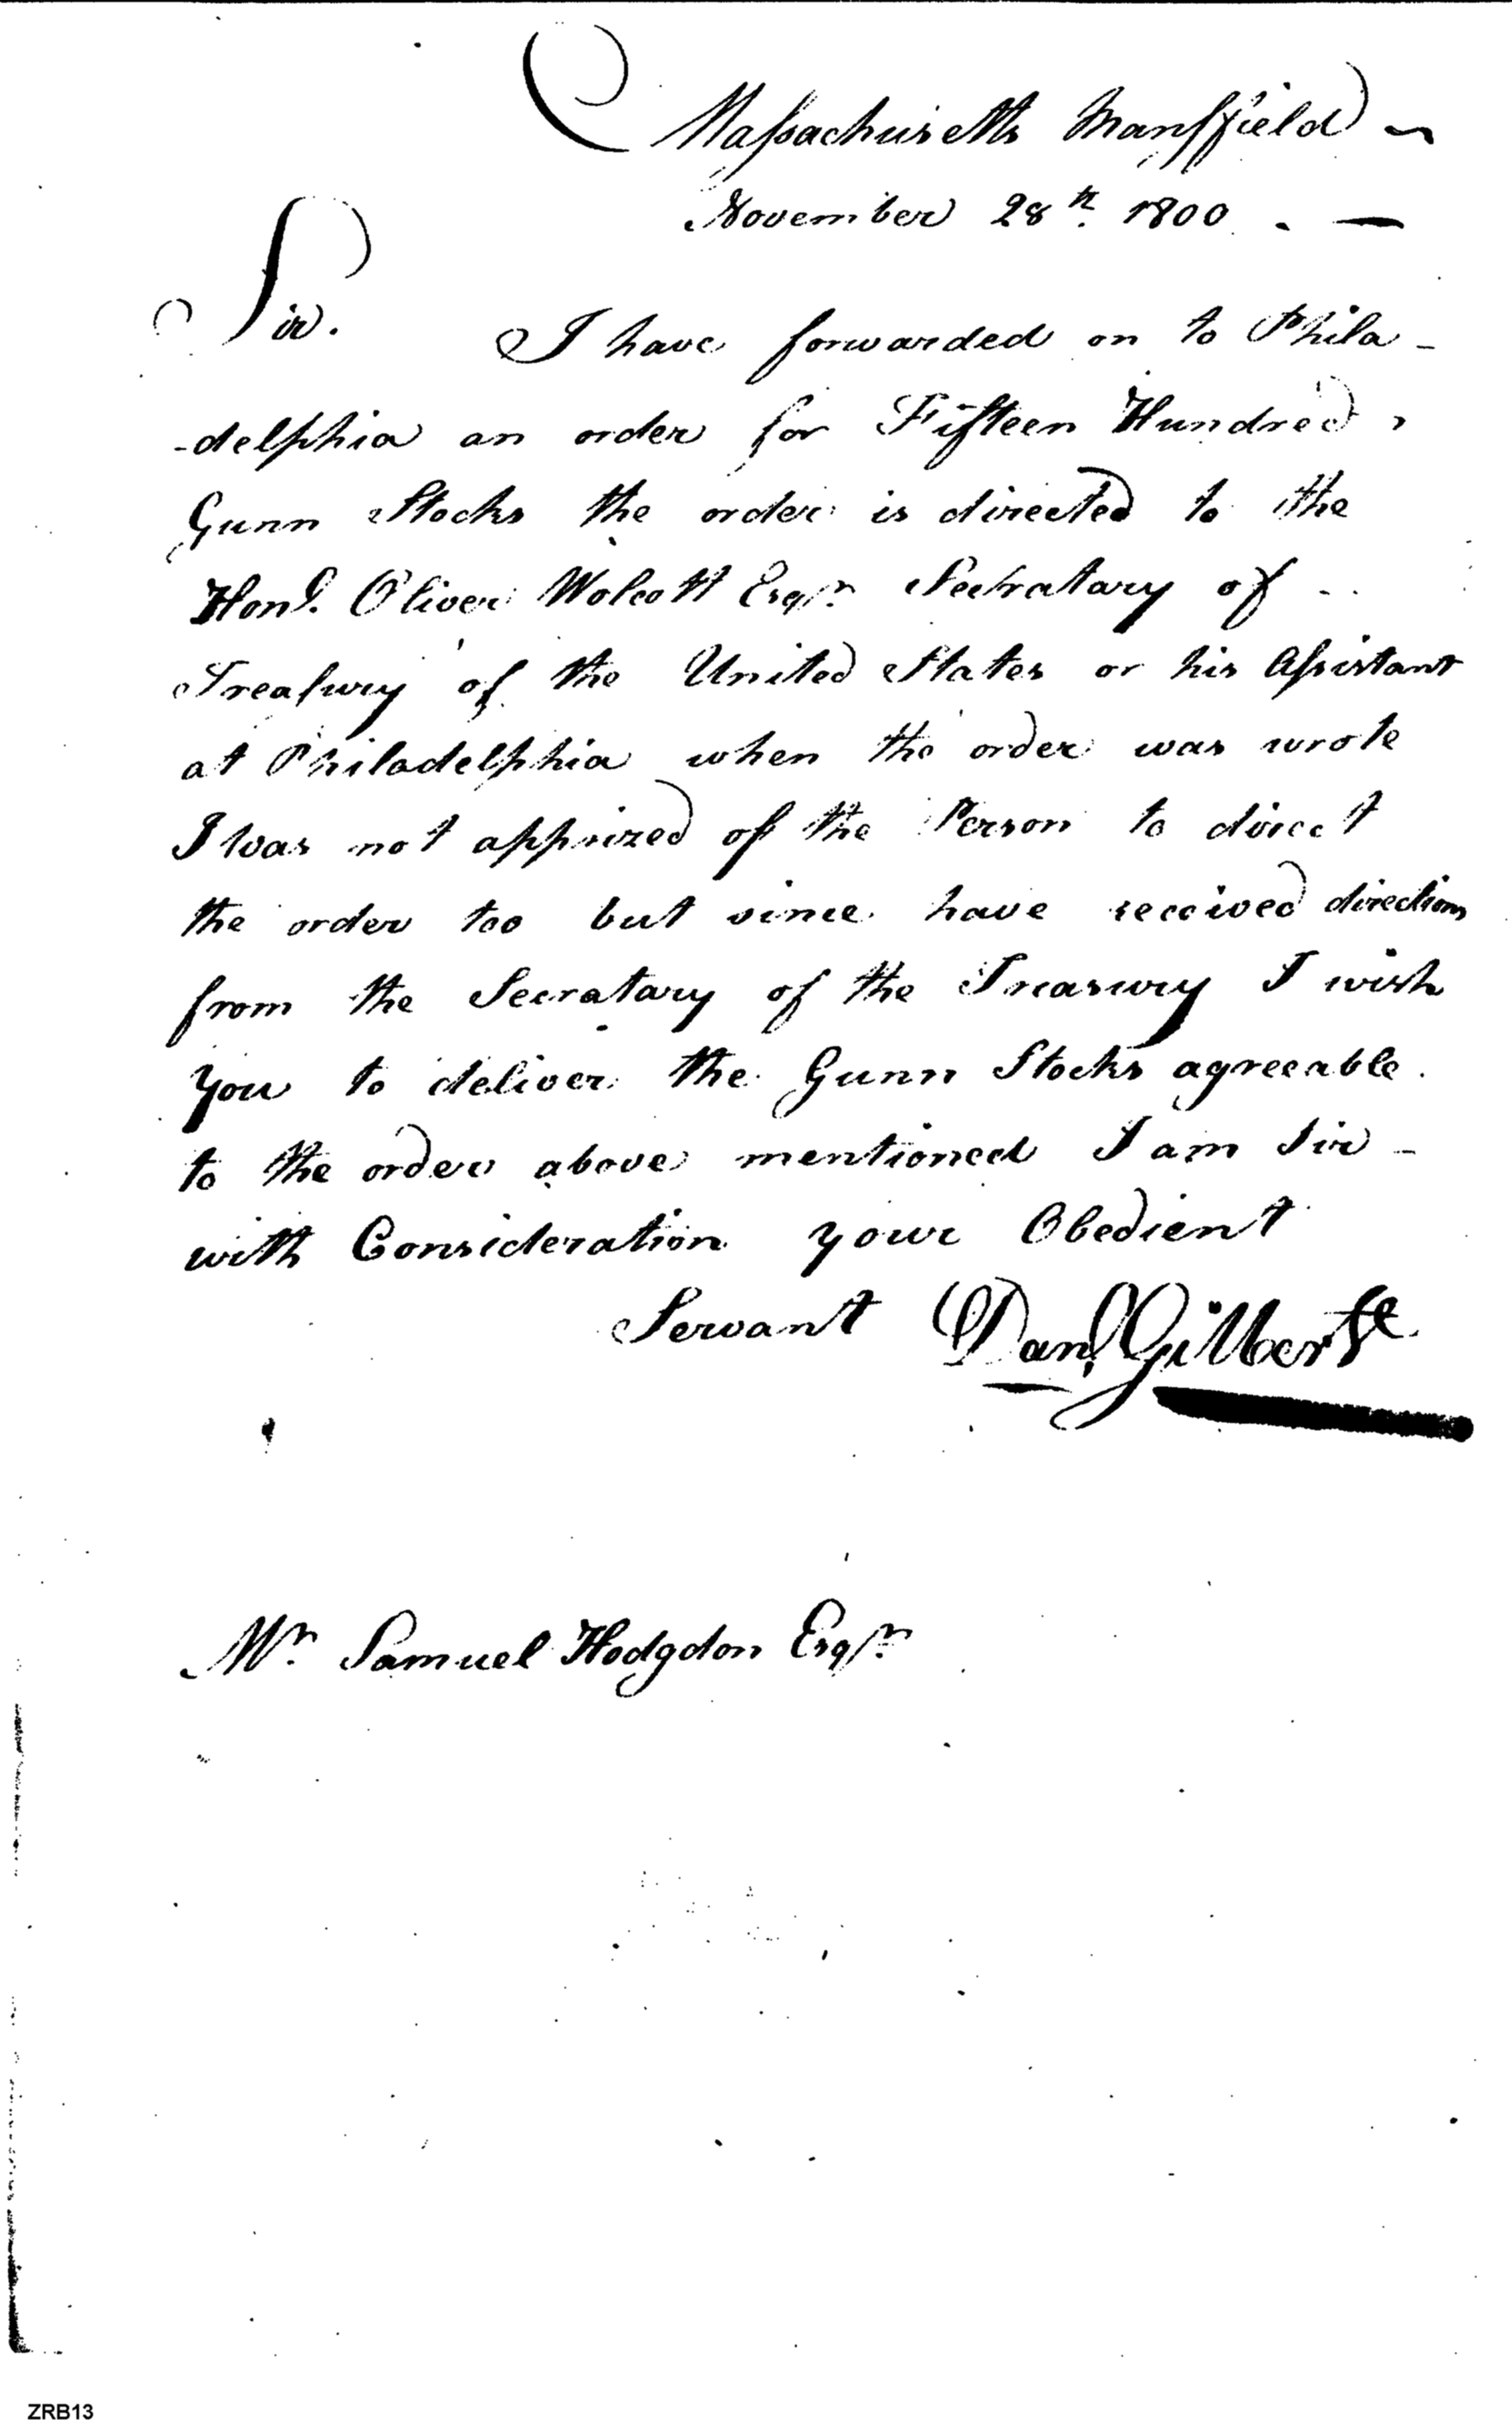 Massachusetts Mansffield
November 28th 1800. —
Sir. I have forwarded on to Phila-
-delphia an order for Fifteen Hundred
Gunn Stocks the order is directed to the
Honl. Oliver Wolcott Esqr. Sectratary of
Treasury of the United States or his Assistant
at Philadelphia when the order was wrote
I was not apprized of the Person to direct
the order too but since have received directions
from the Secratary of the Treasury I wish
you to deliver the Gunn Stocks agreeable
to the order above mentioned I am Sir -
with Consideration your Obedient
Servant Danl. Gilbert
Mr. Samuel Hodgdon Esqr.
ZRB13